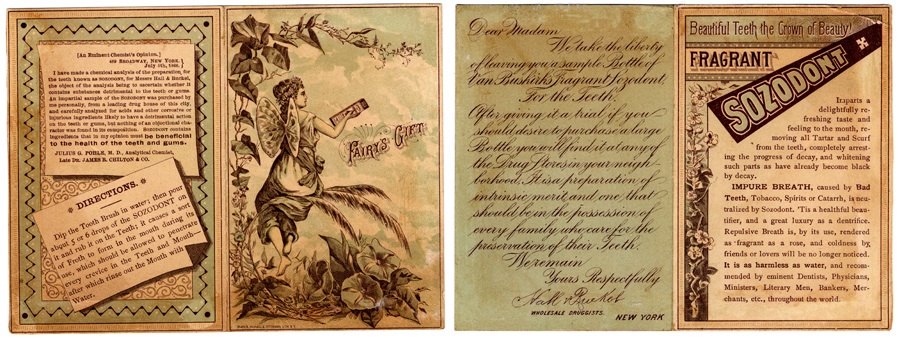 [An Eminent Chemist's Opinion.]
428 BROADWAY, NEW YORK, }
July 9th, 1868. }
I have made a chemical analysis of the preparation, for
the teeth known as SOZODONT, for Messrs Hall & Ruckel,
the object of the analysis being to ascertain whether it
contains substances detrimental to the teeth or gums.
An impartial sample of the SOZODONT was purchased by
me personally, from a leading drug house of this city,
and carefully analyzed for acids and other corrosive or
injurious ingredients likely to have a detrimental action
on the teeth or gums, but nothing of an objectional char-
acter was found in its composition. SOZODONT contains
ingredients that in my opinion will be beneficial
to the health of the teeth and gums.
JULIUS G. POHLE, M. D., Analytical Chemist,
Late Dr. JAMES R. CHILTON & CO.
DIRECTIONS.
Dip the Tooth Brush in water; then pour
about 5 or 6 drops of the SOZODONT on
it and rub it on the Teeth; it causes a sort
of Froth to form in the mouth during its
use, which should be allowed to penetrate
every crevice in the Teeth and Mouth—
after which rinse out the Mouth with
Water.
FAIRY'S GIFT
Dear Madam
We take the liberty
of leaving you a sample Bottle of
Van Buskirk's Fragrant Sozodont
For the Teeth.
After giving it a trial if you
should desire to purchase a large
Bottle you will find it at any of
the Drug Stores in your neigh-
borhood. It is a preparation of
intrinsic merit and one that
should be in the possession of
every family who care for the
preservation of their Teeth.
We remain
Yours Respectfully
Hall & Ruckel
WHOLESALE DRUGGISTS.
NEW YORK
Beautiful Teeth the Crown of Beauty!
FRAGRANT
SOZODONT
Imparts a
delightfully re-
freshing taste and
feeling to the mouth, re-
moving all Tartar and Scurf
from the teeth, completely arrest-
ing the progress of decay, and whitening
such parts as have already become black
by decay.
IMPURE BREATH, caused by Bad
Teeth, Tobacco, Spirits or Catarrh, is neu-
tralized by Sozodont. 'Tis a healthful beau-
tifier, and a great luxury as a dentifrice.
Repulsive Breath is, by its use, rendered
as fragrant as a rose, and coldness by
friends or lovers will be no longer noticed.
It is as harmless as water, and recom-
mended by eminent Dentists, Physicians,
Ministers, Literary Men, Bankers, Mer-
chants, etc., throughout the world.